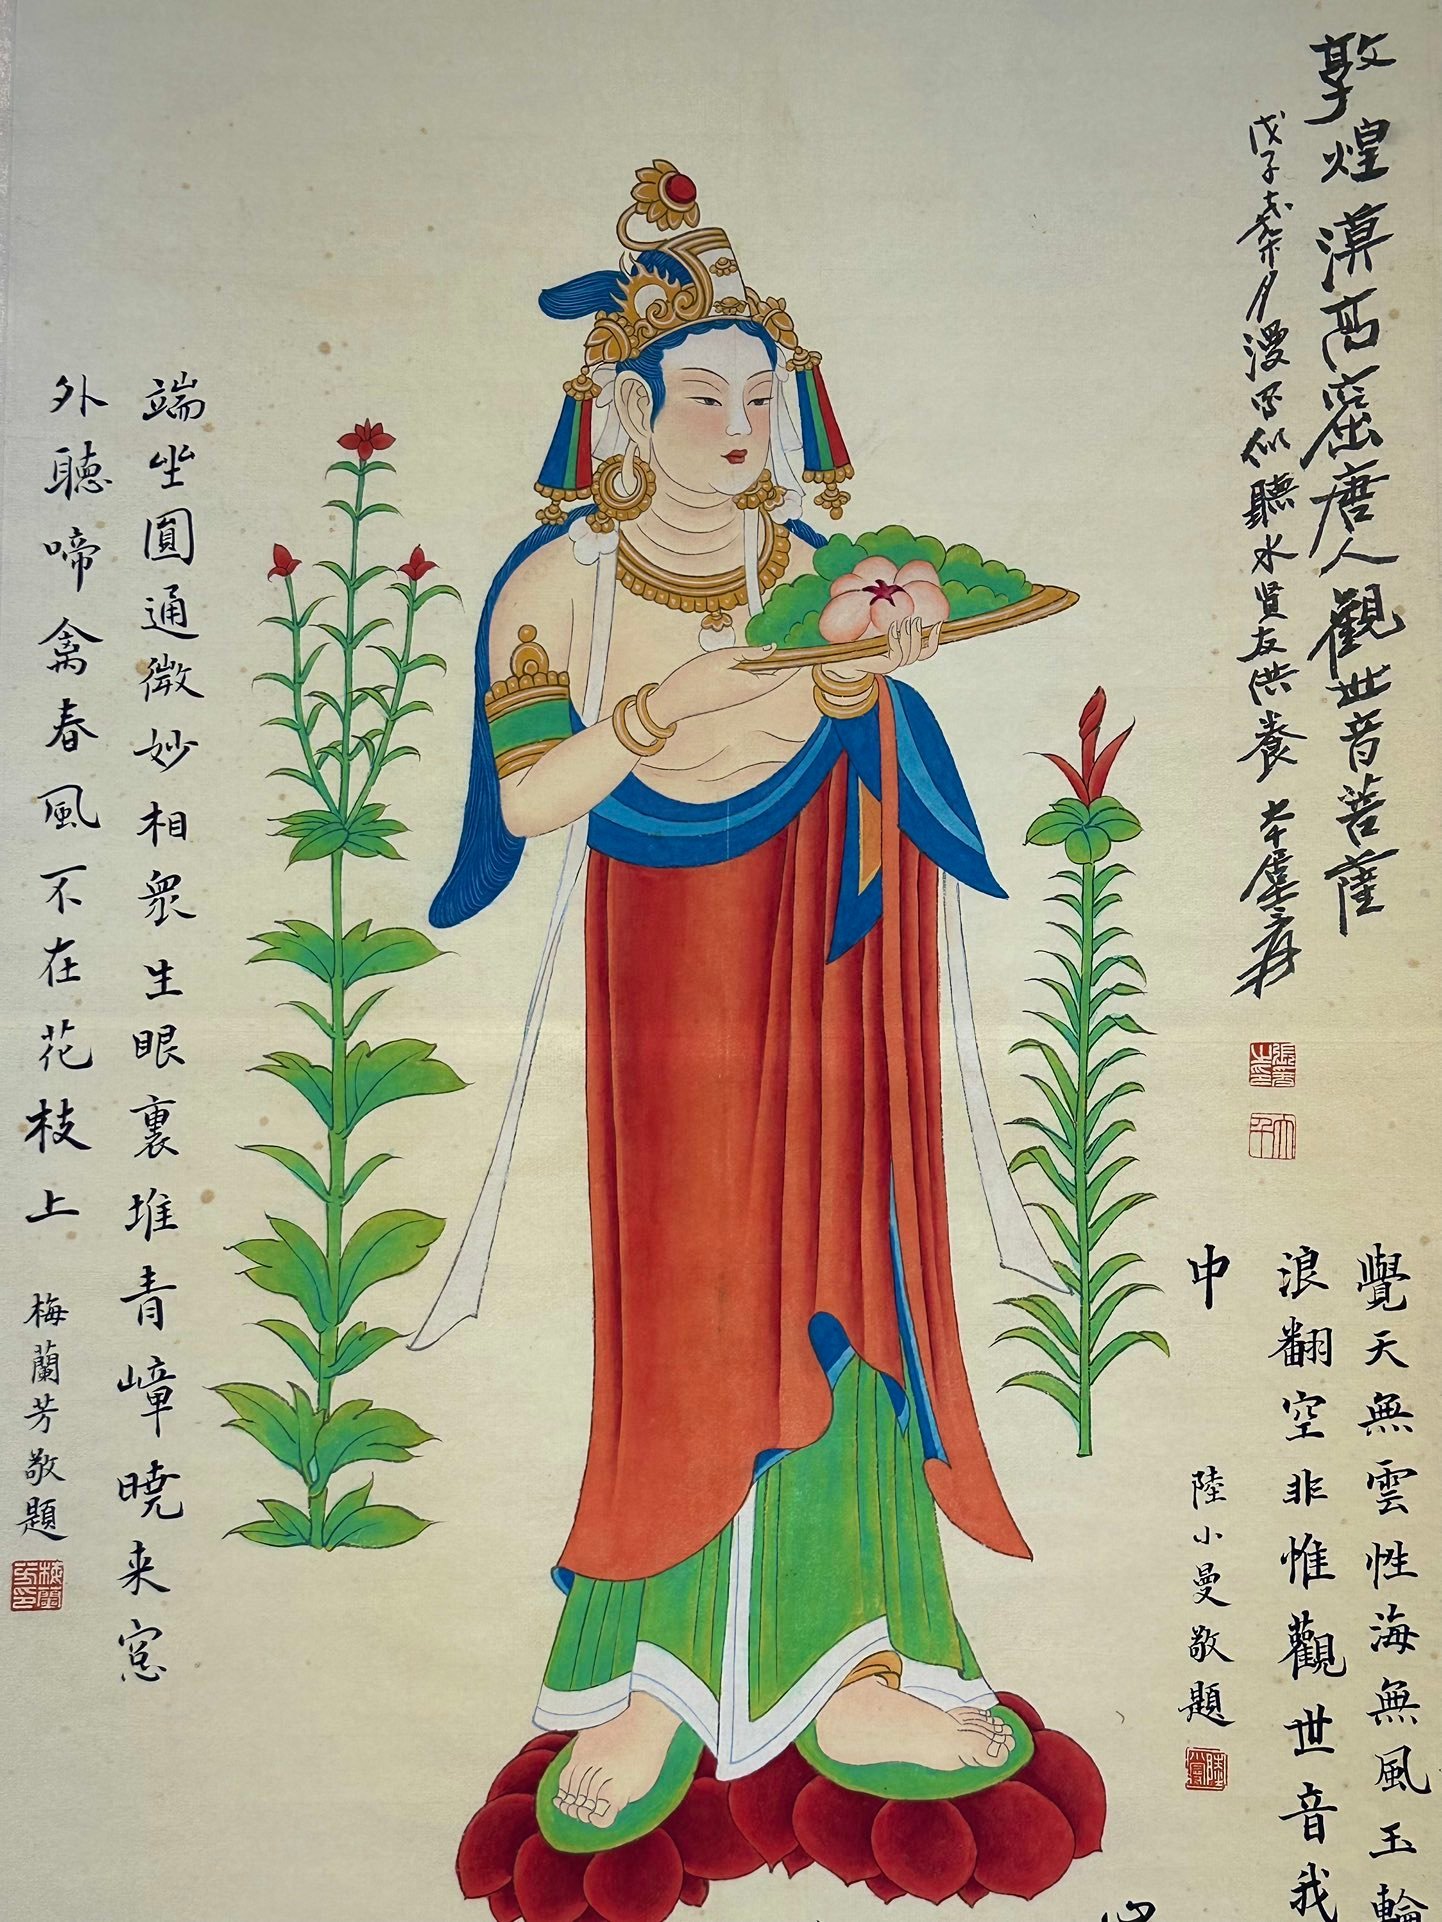 敦煌漠高窟唐人觀世音菩薩
戊子
月漫寫似聽水賢友供養 大千張爰
張爰之印
大千
覺天無雲性海無風玉輪
浪翻空非惟觀世音我
中
陸小曼敬題
端坐圓通微妙相衆生眼裏堆青嶂曉来窓
外聽啼禽春風不在花枝上
梅蘭芳敬題